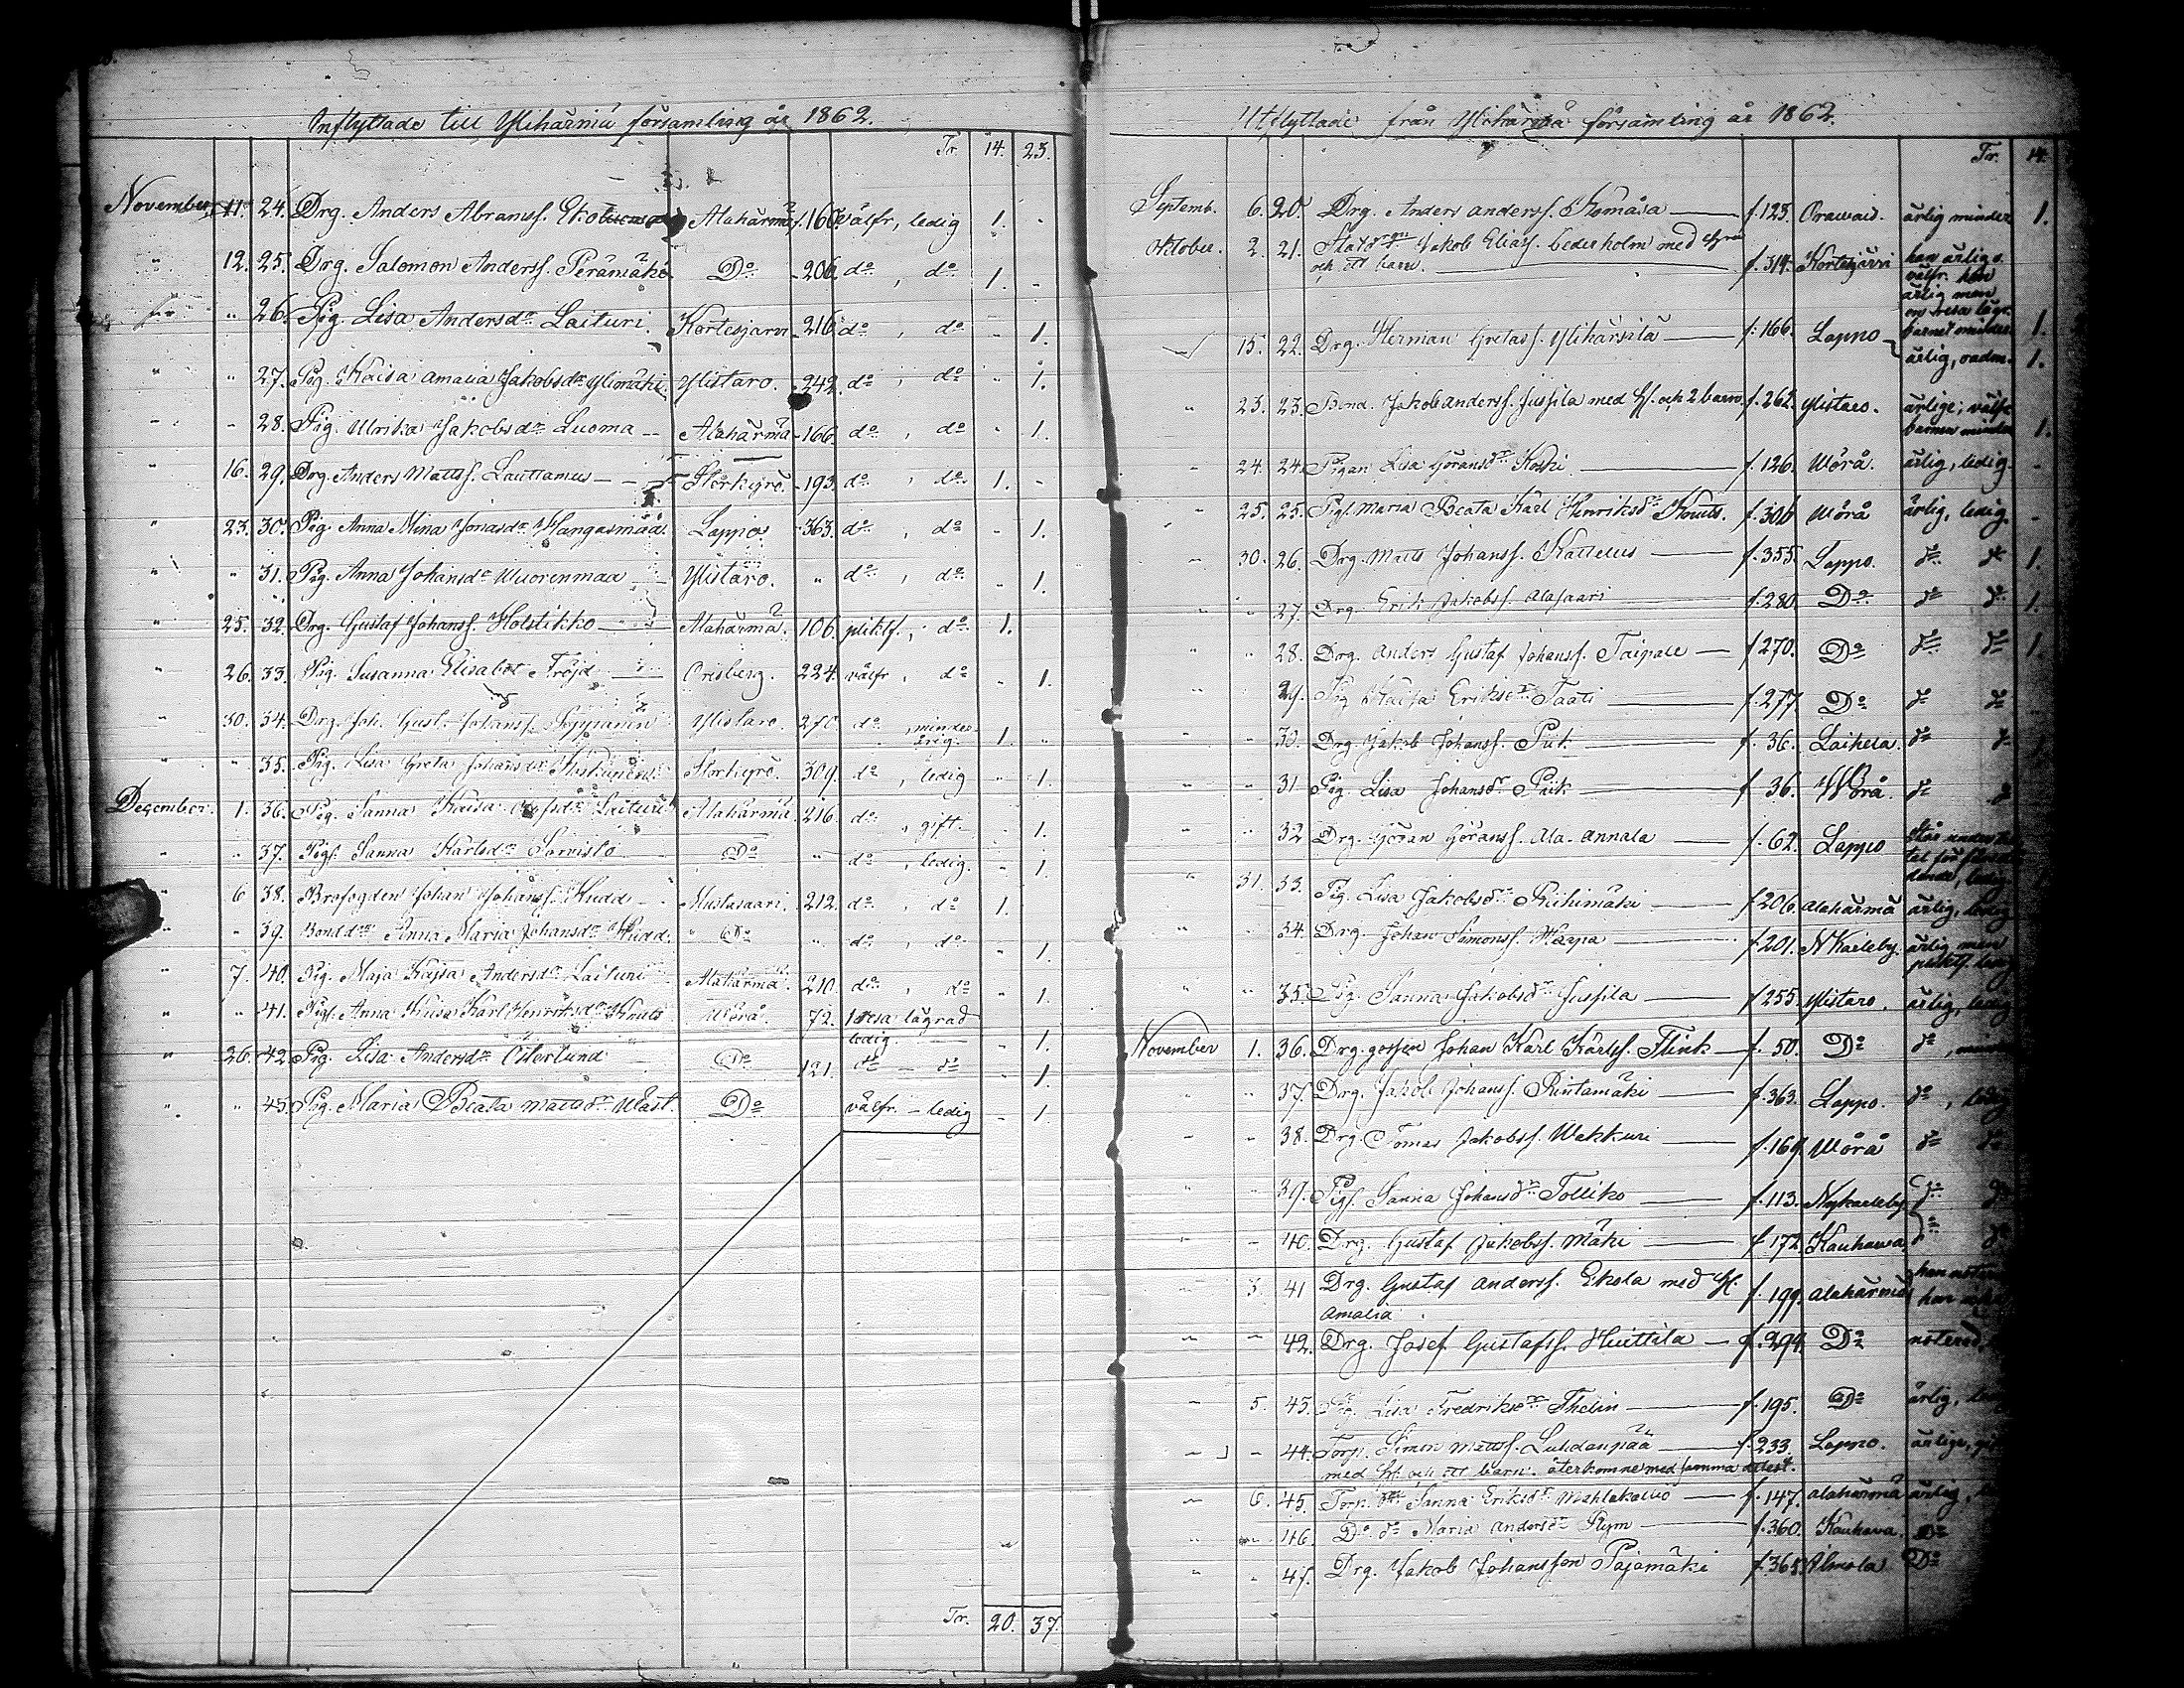 Inflyttade till Ylihärmä församling år 1862.
Tr. 14. 23.
November 11. 24. Drg. Anders Abramss. Alahärmä 166. välfr, ledig 1. -
" 12. 25. Drg. Salomon Anderss. Perämäki Do 206. do, do 1. -
" 26. Pig. Lisa Andersdr Laituri Kortesjärvi 216. do, do - 1.
" " 27. Pig. Kaisa Amalia Jakobsdr Ylimäki Ylistaro. 242. do, do " 1.
" - 28. Pig. Ulrika Jakobsdr Luoma Alahärmä 166. do, do " 1.
" 16. 29. Drg. Anders Mattss. Lauttamus Storkyrö 193. do, do 1. -
" 23. 30. Pig. Anna Mina Jonasdr Hangasmaa Lappo 363. do, do - 1.
" " 31. Pig. Anna Johansdr Wuorenmaa Ylistaro. " do, do - 1.
" 25. 32. Drg. Gustaf Johanss. Holstikko Alahärmä. 106. pliktf., do 1.
" 26. 33. Pig. Susanna Elisabet Fröjd Orisberg. 224. välfr, do - 1.
" 30. 34. Drg. Joh. Gust. Johanss. Ylistaro 270. do, minder-
årig. 1. "
" " 35. Pig. Lisa Greta Johansdr Storkyrö. 309. do, ledig - 1.
December. 1. 36. Pig. Sanna Kaisa Laituri Alahärmä 216. do, gift - 1.
" " 37. Pig. Sanna Karlsdr Do " do, ledig. - 1.
" 6 38. Brofogden Johan Johanss. Kudd Mustasaari. 212. do, do 1.
" " 39. Bonddr Anna Maria Johansdr Kudd " Do " do, do - 1.
" 7. 40. Pig. Maja Kajsa Andersdr Laituri Alahärmä. 210. do, do - 1.
" " 41. Pig. Anna Kaisa Karl Henriksdr Knuts Wörå. 72. 1 resa lägrad
ledig. - 1.
" 26. 42. Pig. Lisa Andersdr Österlund Do 121. do - do - 1.
" " 43. Pig. Maria Beata Mattsdr Wäst. Do välfr. - ledig - 1.
Tr. 20. 37.
Utflyttade från Ylihärmä församling år 1862.
Tr. 14.
Septemb. 6. 20. Drg. Anders Anderss. f. 123. Orawais. ärlig minder 1.
Oktober. 2. 21. Jakob Eliass. Cederholm med hustru
och ett barn. f. 314. Kortesjärvi han ärlig o
välfr. hon
ärlig men
en resa lägr.
barnet minder. 1.
15. 22. Drg. Herman Gretass. Ylihärsilä f. 166. Lappo ärlig, 1.
" 23. 23. Bond. Jakob Anderss. Jussila med h. och 2 barn f. 262. Ylistaro. ärlige; välfr
barnen minder 1.
- 24. 24. Pigan Lisa Göransdr Koski f. 126. Wörå. ärlig, ledig. -
- 25. 25. Pig. Maria Beata Karl Henriksdr Knuts. f. 306 Wörå ärlig, ledig. -
- 30. 26. Drg. Matts Johanss. Kattelus f. 355. Lappo. do do 1.
" " 27. Drg. Erik Jakobss. Alasaari f. 280. Do do do 1.
" " 28. Drg. Anders Gustaf Johanss. Taipale f. 270. Do do do 1.
" " 29. Pig. Kaisa Eriksdr Taati f. 277. Do do do
" " 30. Drg. Jakob Johanss. Piik f. 36. Laihela. do do
" " 31. Pig. Lisa Johansdr Piik f. 36. Wörå. do do
" " 32 Drg. Göran Göranss. Ala-Annala f. 62. Lappo
" 31. 33. Pig. Lisa Jakobsdr Riihimäki f. 206. Alahärmä ärlig, ledig
" " 34. Drg. Johan Simonss. Harpa f. 201. N Karleby. ärlig men
pliktf. ledig
" " 35. Pig. Sanna Jakobsdr Jussila f. 255. Ylistaro. ärlig, ledig
November 1. 36. Drg. gossen Johan Karl Karlss. Flink f. 50. Do do,
" 37. Drg. Jakob Johanss. Rintamäki f. 363. Lappo. do, ledig
- - 38. Drg. Tomas Jakobss. Wekkuri f. 169. Wörå do do
" " 39. Pig. Sanna Johansdr Tolliko f. 113. Nykarleby do do
" - 40. Drg. Gustaf Jakobss. Mäki f. 172. Kauhava do do
" 3. 41 Drg. Gustaf Anderss. Ekola med h.
Amalia f. 199. Alahärmä
" - 42. Drg. Josef Gustafss. Huittila f. 294. Do noterad
- 5. 43. Pig. Lisa Fredriksdr Thelin f. 195. Do ärlig,
- - 44. Torp. Simon Mattss. Luhdanpää f. 233. Lappo. ärlige,
med h. och ett barn. återkomne med samma attest.
- 6. 45. Torp. dr Sanna Eriksdr Mahlakallio f. 147. Alahärmä ärlig,
" - 46. Do dr Maria Andersdr Rym f. 360. Kauhava. Do
" - 47. Drg. Jakob Johansson Pajamäki f. 365. Ilmola Do